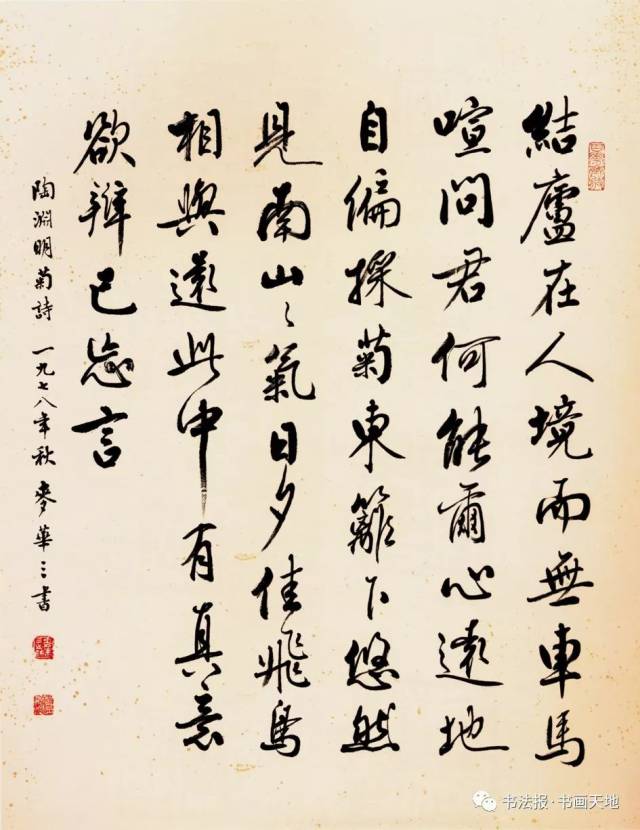 結廬在人境而無車馬
喧問君何能爾心遠地
自偏採菊東籬下悠然
見南山〻氣日夕佳飛鳥
相與還此中有真意
欲辯已忘言
陶淵明菊詩 一九七八年秋 麥華三書
书法报·书画天地